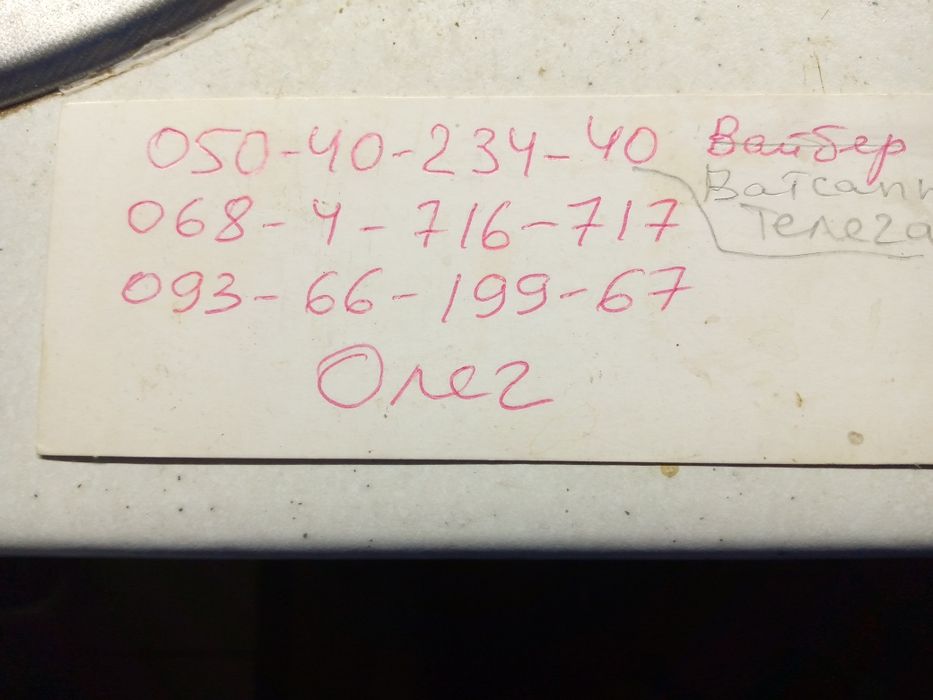 050-40-234-40 Вайбер
Ватсапп
068-4-716-717 Телега
093-66-199-67
Олег